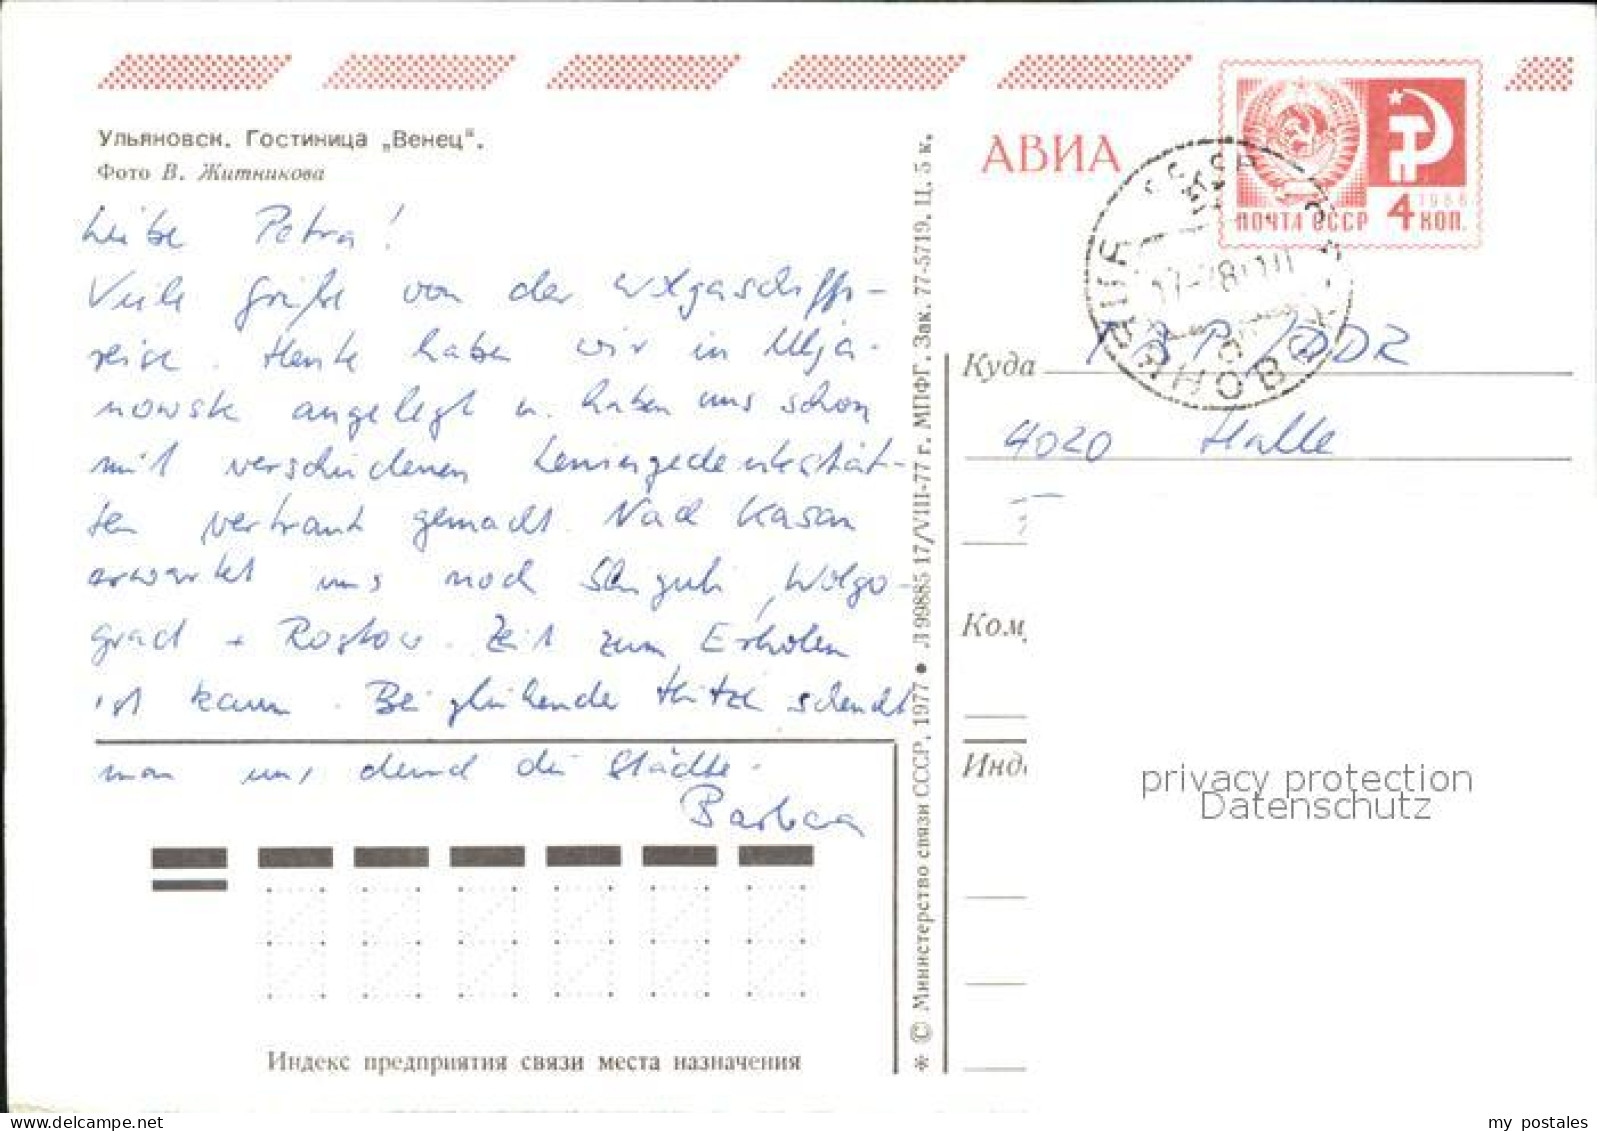 Ульяновск. Гостиница „Венец“.
Фото В. Житникова
Liebe Petra!
Viele Grüße von der Wolgaschiffs-
reise. Heute haben wir in Ulja-
nowsk angelegt u. haben uns schon
mit verschiedenen Leningedenkstät-
ten vertraut gemacht. Nach Kasan
erwartet uns noch Shiguli, Wolgo-
grad + Rostow. Zeit zum Erholen
ist kaum. Bei glühender Hitze scheucht
man uns durch die Städte.
Barbara
Индекс предприятия связи места назначения
✻ © Министерство связи СССР, 1977 ● Л 99885 17/VIII-77 г. МПФГ. Зак. 77-5719. Ц. 5 к.
АВИА
ПОЧТА СССР 4 КОП.
1966
Куда
DDR
4020 Halle
Ком
Инд
privacy protection
Datenschutz
my postales